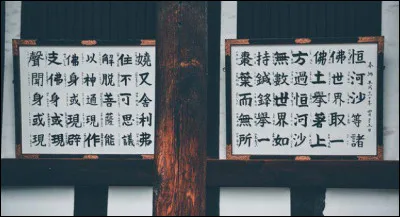 恒河沙等諸
佛世界取一
佛土擧著上
方過恒河沙
無數世界如
持鍼鋒擧一
棗葉而無所
嬈又舍利弗
住不可思議
解脱菩薩能
以神通現作
佛身或現辟
支佛身或現
聲聞身或現